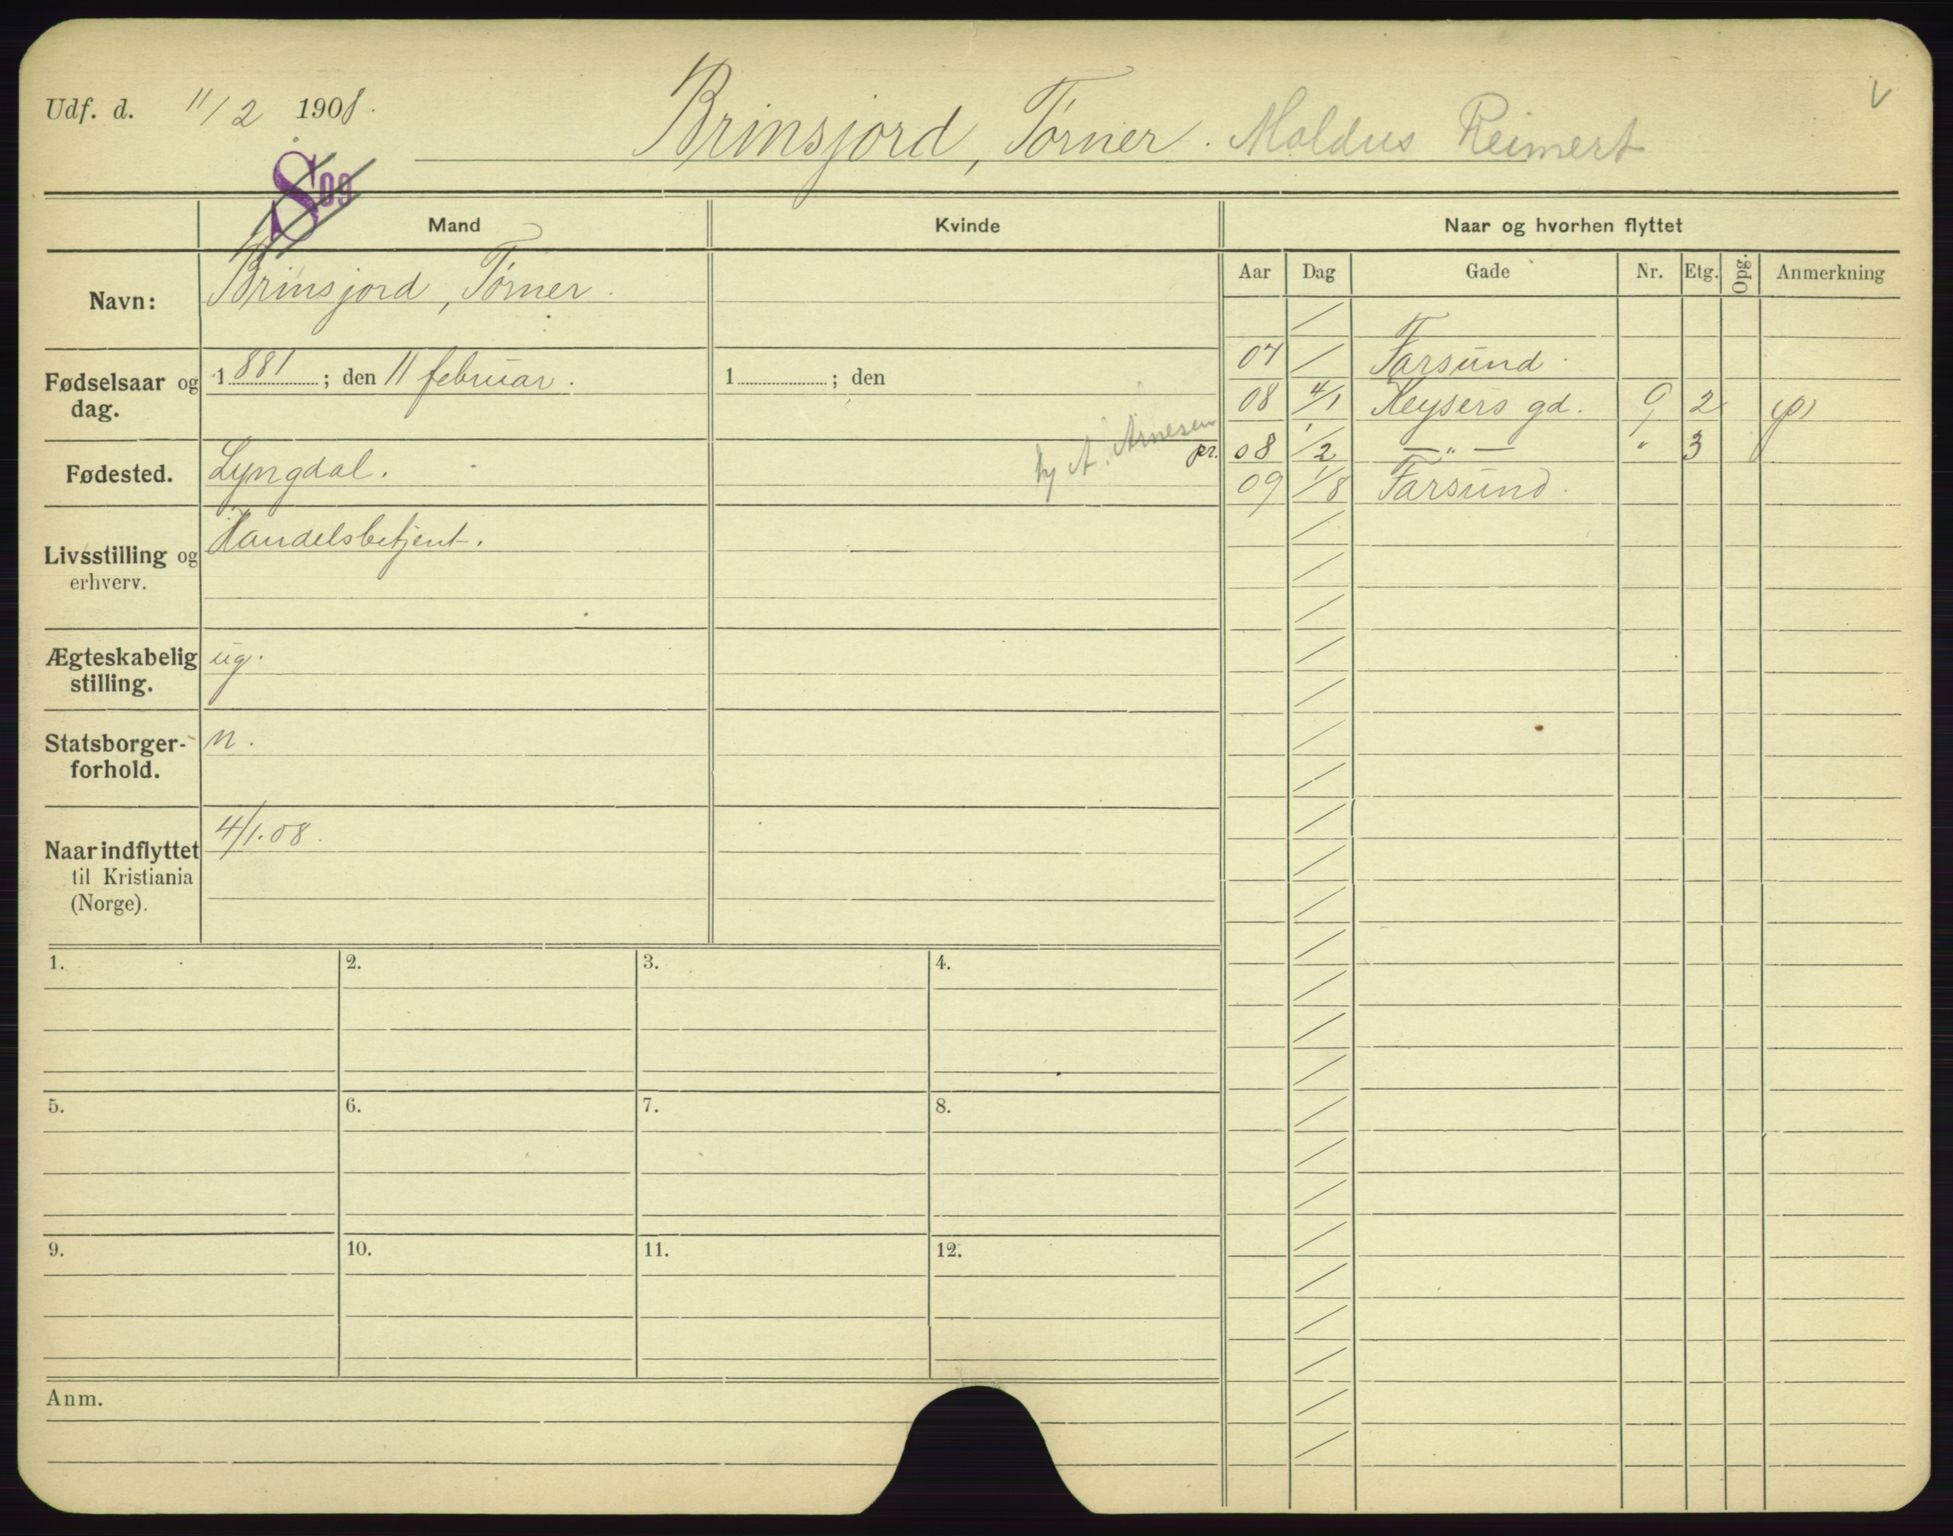 Udf. d. 11/2 1908. Brinsjord, Tørner. Moldus Reimert
S 09
Mand Kvinde Naar og hvorhen flyttet
Aar Dag Gade Nr. Etg. Opg. Anmerkning
Navn: Brinsjord, Tørner.
07 / Farsund.
Fødselsaar og dag. 1881; den 11 februar. 1 ; den
08 4/1 Keysers gd. 9 2
hj A. Arnesen
pr. 08 1/2 — " — " 3
Fødested. Lyngdal.
09 1/8 Farsund.
Livsstilling og erhverv. Handelsbetjent.
Ægteskabelig stilling. ug.
Statsborgerforhold. n.
Naar indflyttet til Kristiania (Norge). 4/1.08.
1. 2. 3. 4.
5. 6. 7. 8.
9. 10. 11. 12.
Anm.